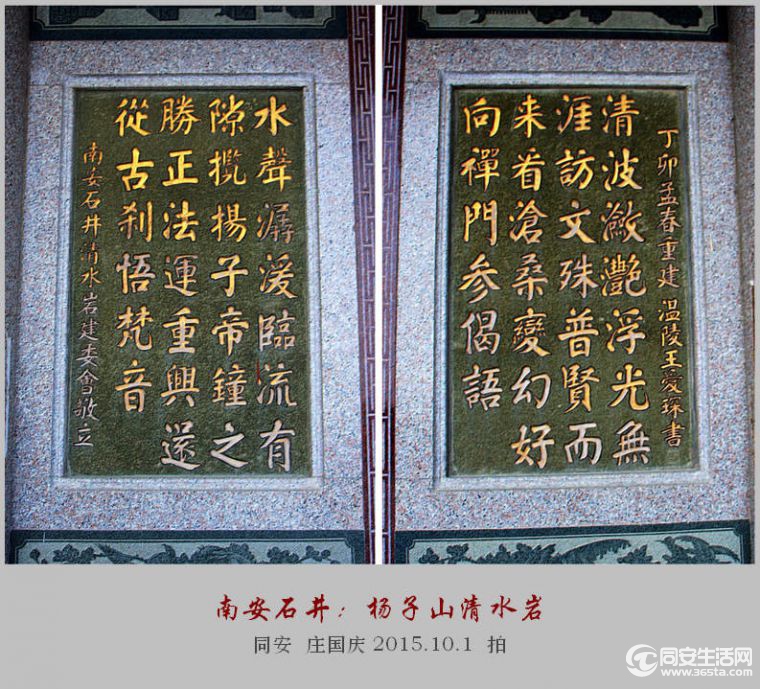 丁卯孟春重建 温陵王愛琛書
清波潋灩浮光無
涯訪文殊普賢而
来看滄桑變幻好
向禪門参偈語
水聲潺湲臨流有
隙攬揚子帝鐘之
勝正法運重興
從古刹悟梵音
南安石井清水岩建委會敬立
南安石井：杨子山清水岩
同安 庄国庆 2015.10.1 拍
同安生活网
www.36sta.com